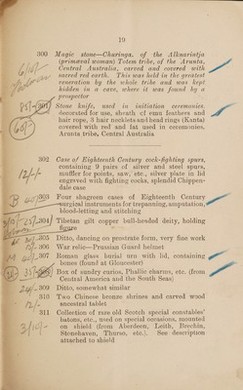 19
300 Magic stone—Churinga, of the Alknarintja
(primæval woman) Totem tribe, of the Arunta,
Central Australia, carved and covered with
sacred red earth. This was held in the greatest
veneration by the whole tribe and was kept
hidden in a cave, where it was found by a
prospector
301 Stone knife, used in initiation ceremonies,
decorated for use, sheath of emu feathers and
hair ropes, 3 hair necklets and head rings (Runta)
covered with red and fat used in ceremonies.
Arunta tribe, Central Australia
302 Case of Eighteenth Century cock-fighting spurs,
containing 9 pairs of silver and steel spurs,
muffler for points, saw, etc., silver plate in lid
engraved with fighting cocks, splendid Chippen-
dale case
303 Four shagreen cases of Eighteenth Century
surgical instruments for trepanning, amputation,
blood-letting and stitching
304 Tibetan gilt copper bull-headed deity, holding
figure
305 Ditto, dancing on prostrate form, very fine work
306 War relic—Prussian Guard helmet
307 Roman glass burial urn with lid, containing
bones (found at Gloucester)
308 Box of sundry curios, Phallic charms, etc. (from
Central America and the South Seas)
309 Ditto, somewhat similar
310 Two Chinese bronze shrines and carved wood
ancestral tablet
311 Collection of rare old Scotch special constables'
batons, etc., used on special occasions, mounted
on shield (from Aberdeen, Leith, Brechin,
Stonehaven, Thurso, etc.). See description
attached to shield